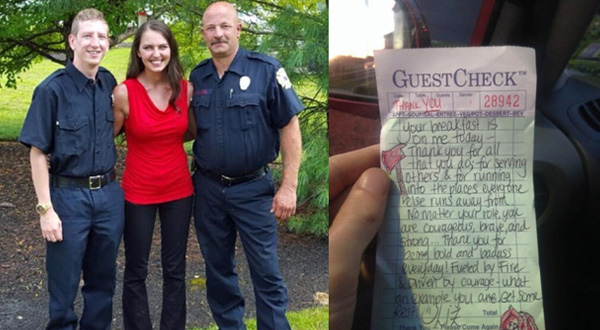 GUESTCHECK™
THANK YOU
28942
Your breakfast is
on me today -
Thank you for all
that you do; for serving
others & for running
into the places everyone
else runs away from.
No matter your role, you
are courageous, brave, and
strong. Thank you for
being bold and badass
everyday! Fueled by Fire
& Driven by courage - what
an example you are. Get some
rest
Total
Please Come Again